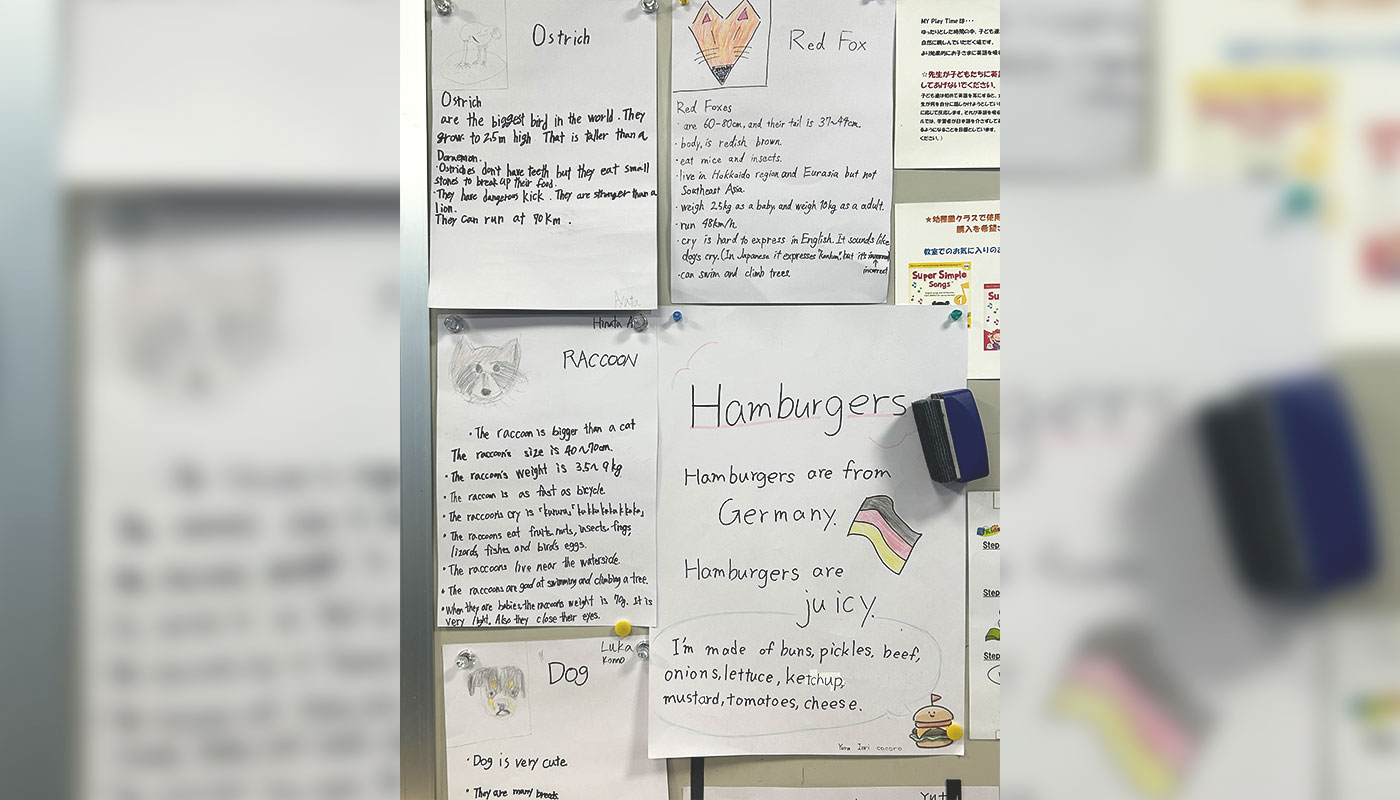 Ostrich
Ostrich
are the biggest bird in the world. They
grow to 2.5m high That is taller than a
Doraemon.
·Ostriches don't have teeth but they eat small
stones to break up their food.
·They have dangerous kick. They are stronger than a
lion.
They can run at 90km.
Red Fox
Red Foxes
·are 60-80cm, and their tail is 37~44cm.
·body, is redish brown.
·eat mice and insects.
·live in Hokkaido region and Eurasia but not
Southeast Asia.
·weigh 2.5kg as a baby, and weigh 10kg as a adult.
·run 48km/h.
·cry is hard to express in English. It sounds like
dog's cry. (In Japanese it expresses "Konkon", but it's
incorrect
·can swim and climb trees.
MY Play Time は・・・
ゆったりとした時間の中、子ども達
自然に親しんでいただく場です。
☆先生が子どもたちに英語
してあげないでください。
ください。)
★幼稚園クラスで使用
購入を希望
教室でのお気に入りの
Super Simple
Songs
Hinata A
RACCOON
·The raccoon is bigger than a cat
The raccoon's size is 40~70cm.
·The raccoon's weight is 3.5~9kg
·The raccoon is as fast as bicycle.
·The raccoon's cry is「kururu」kokkokokokkoko」
·The raccoons eat fruits, nuts, insects, frogs,
lizards, fishes and bird's eggs.
·The raccoons live near the waterside.
·The raccoons are good at swimming and climbing a tree.
·When they are babies, the raccoon's weight is 70g. It is
very light. Also they close their eyes.
Hamburgers
Hamburgers are from
Germany.
Hamburgers are
juicy.
I'm made of buns, pickles, beef,
onions, lettuce, ketchup,
mustard, tomatoes, cheese.
Yuna Iori cocoro
Luka
Kono
Dog
·Dog is very cute
·They are many breeds
Step
Step
Step